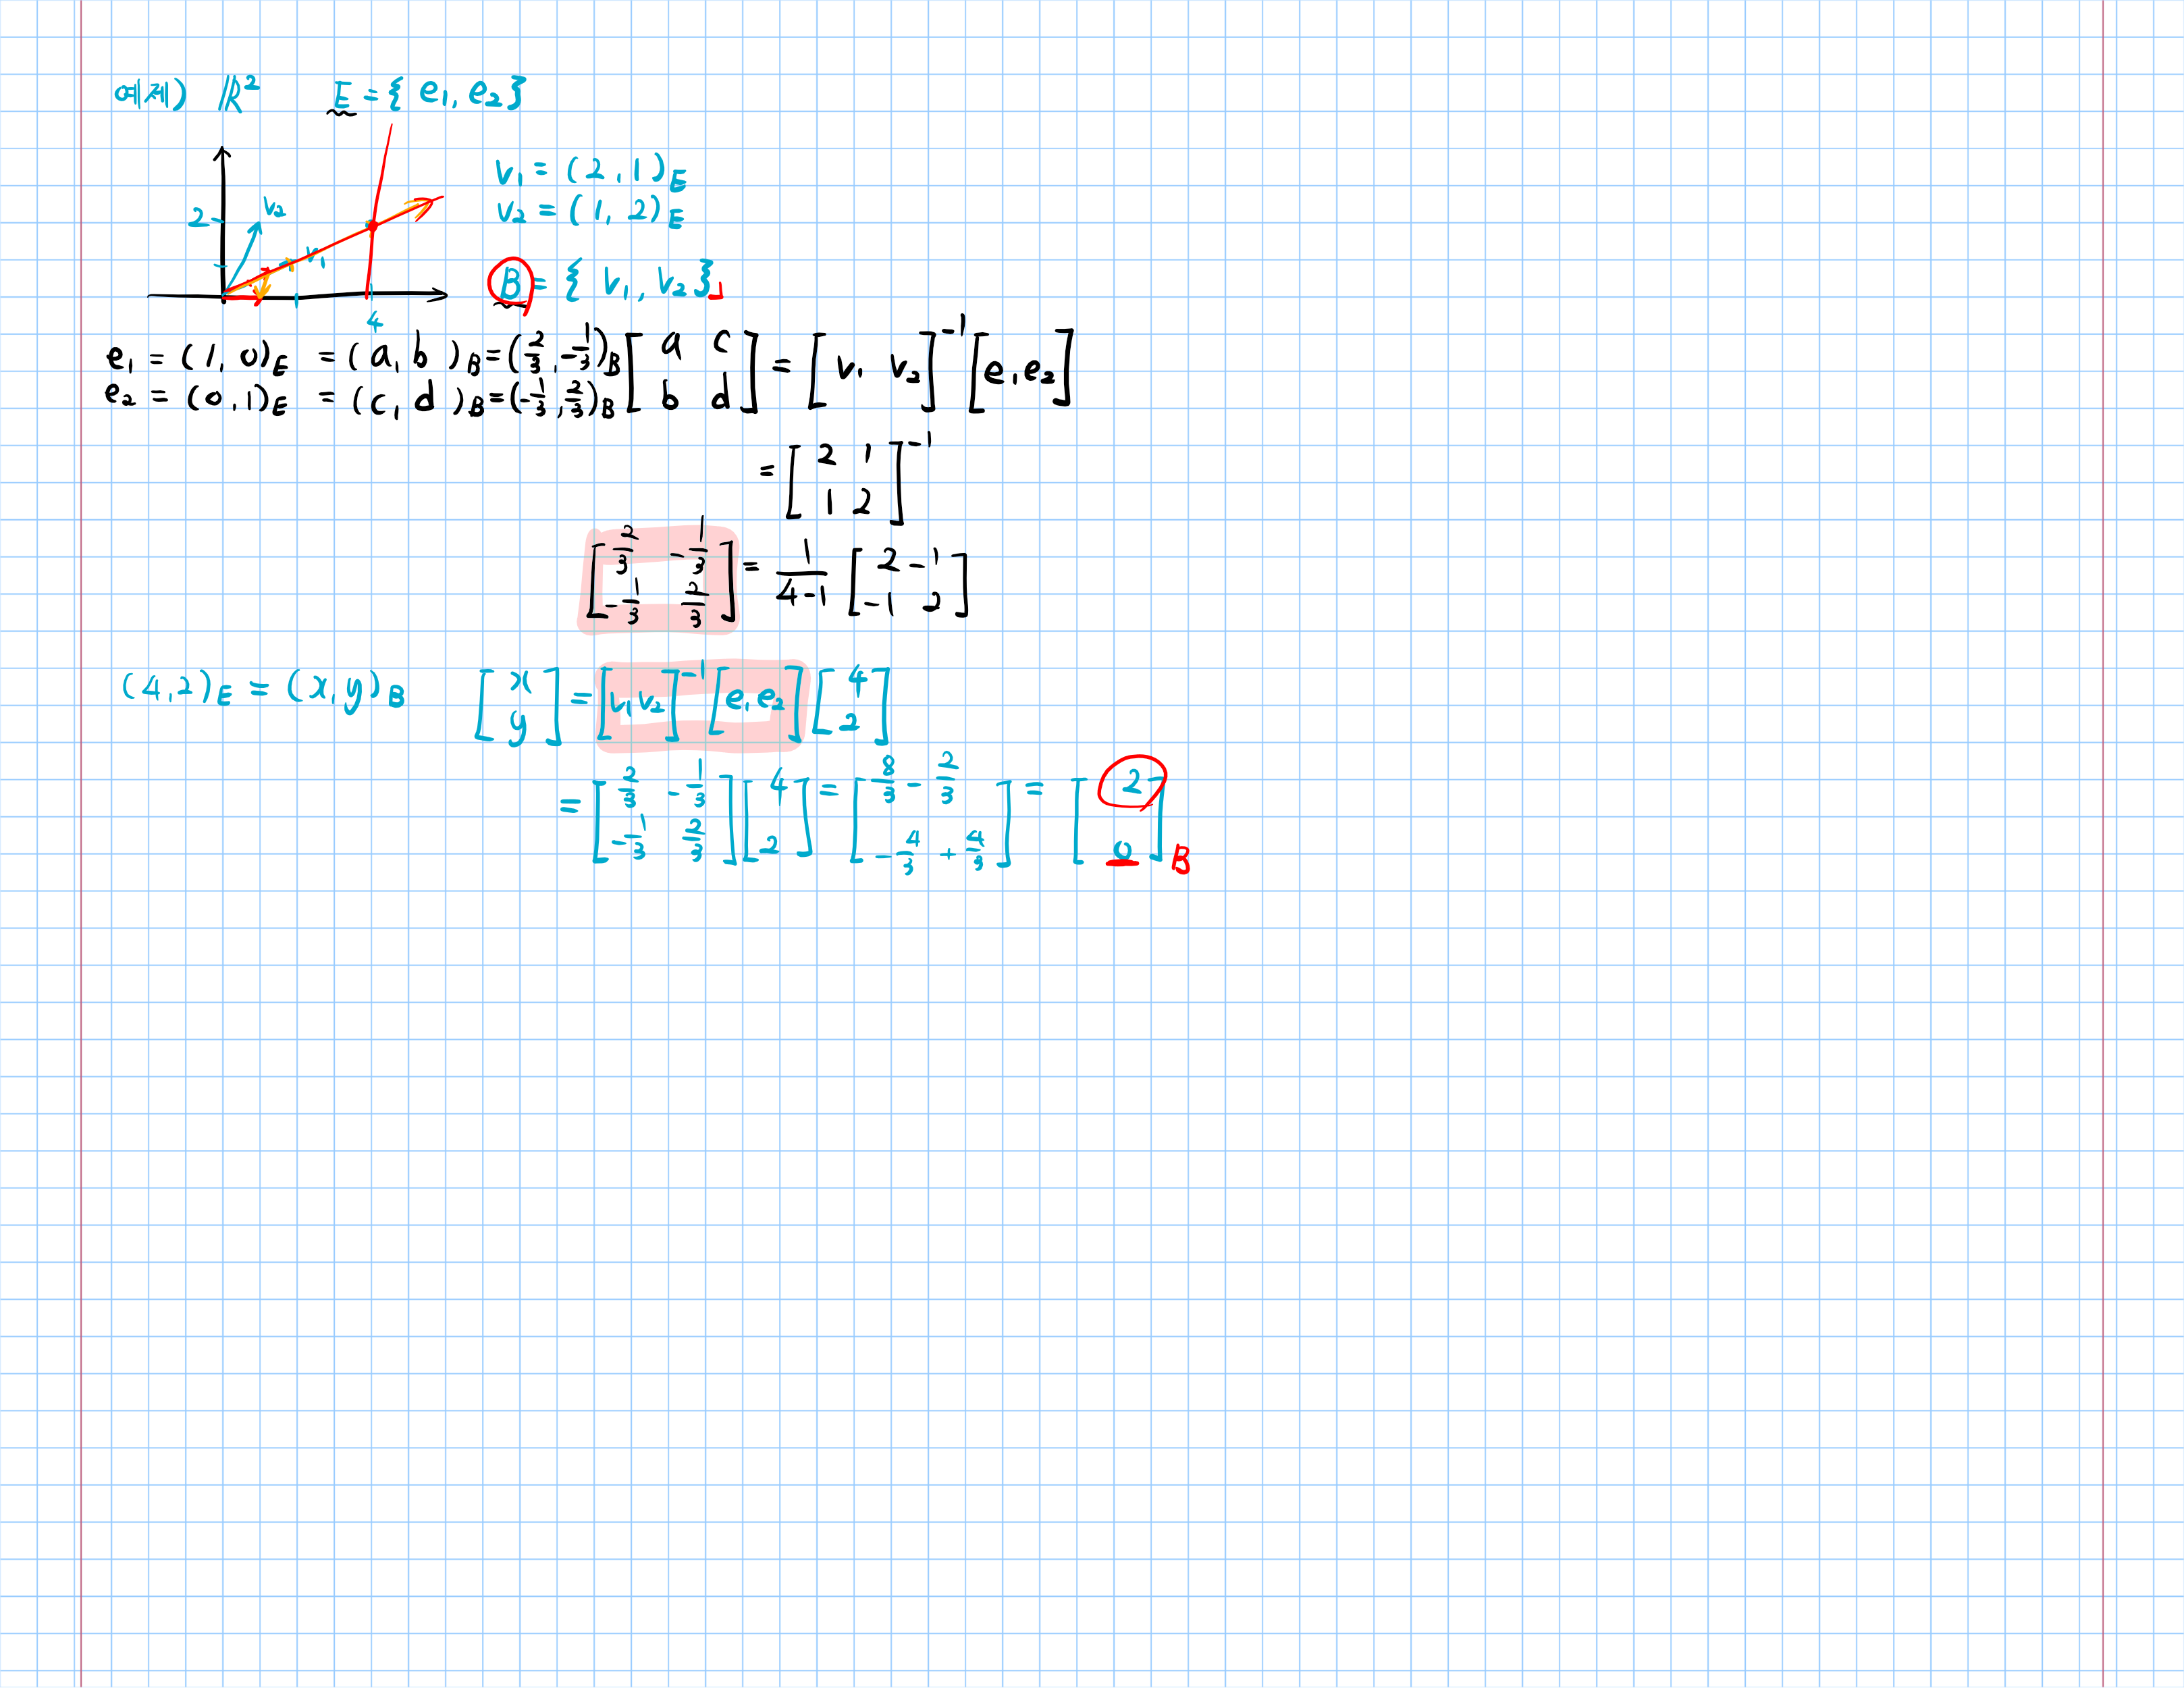 예제) ℝ² E = { e₁, e₂ }
v₁ = (2, 1)_E
2 v₂
v₂ = (1, 2)_E
v₁
B = { v₁, v₂ }
4
e₁ = (1, 0)_E = (a, b)_B = (2/3, -1/3)_B [a c; b d] = [v₁ v₂]⁻¹ [e₁ e₂]
e₂ = (0, 1)_E = (c, d)_B = (-1/3, 2/3)_B
= [2 1; 1 2]⁻¹
[2/3 -1/3; -1/3 2/3] = 1/(4-1) [2 -1; -1 2]
(4, 2)_E = (x, y)_B [x; y] = [v₁ v₂]⁻¹ [e₁ e₂] [4; 2]
= [2/3 -1/3; -1/3 2/3] [4; 2] = [8/3 - 2/3; -4/3 + 4/3] = [2; 0]_B